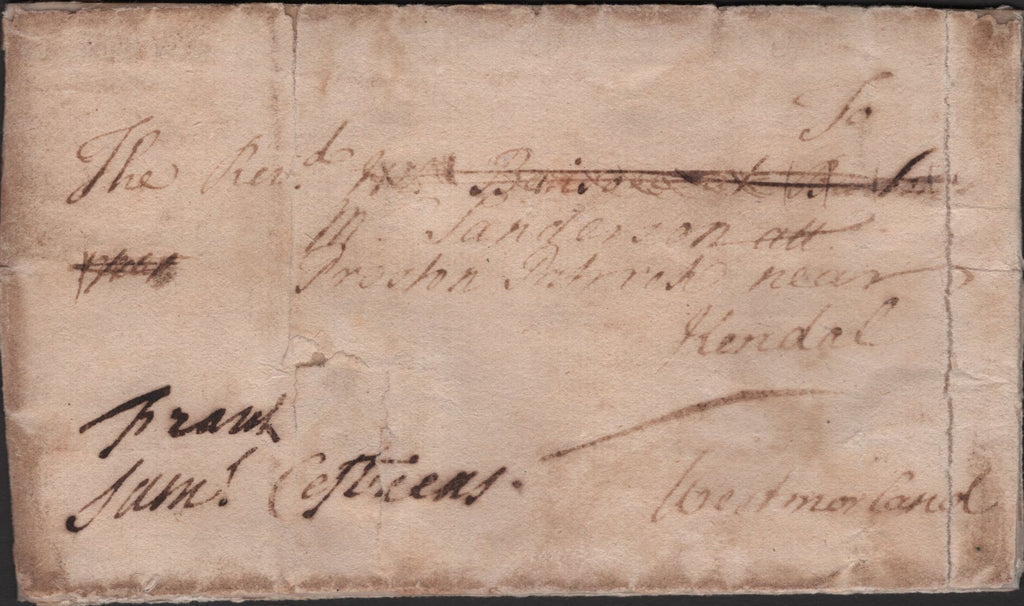 To
The Rev.d
Mr. Sanderson att
Preston Patrick near
Kendal
Frank
Sam.l Cestriens.
Westmorland